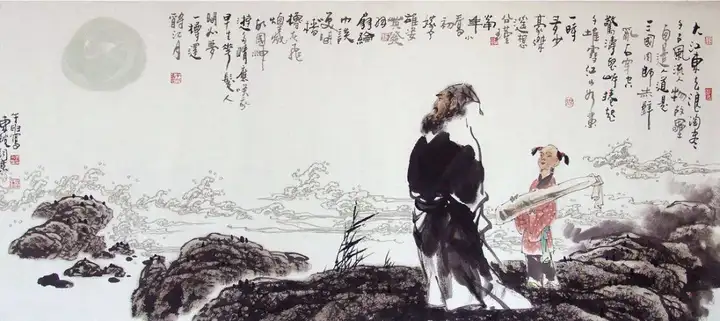 大江東去浪淘盡
千古風流人物故壘
西邊人道是
三國周郎赤壁
亂石穿空
驚濤拍岸捲起
千堆雪江山如畫
一時
多少
豪傑
遙想
公瑾
當
年小
喬初
嫁了
雄姿
英發
羽扇綸
巾談
笑間
檣
櫓灰飛
煙滅
故國神
遊多情應笑我
早生華髮人
間如夢
一樽還
酹江月